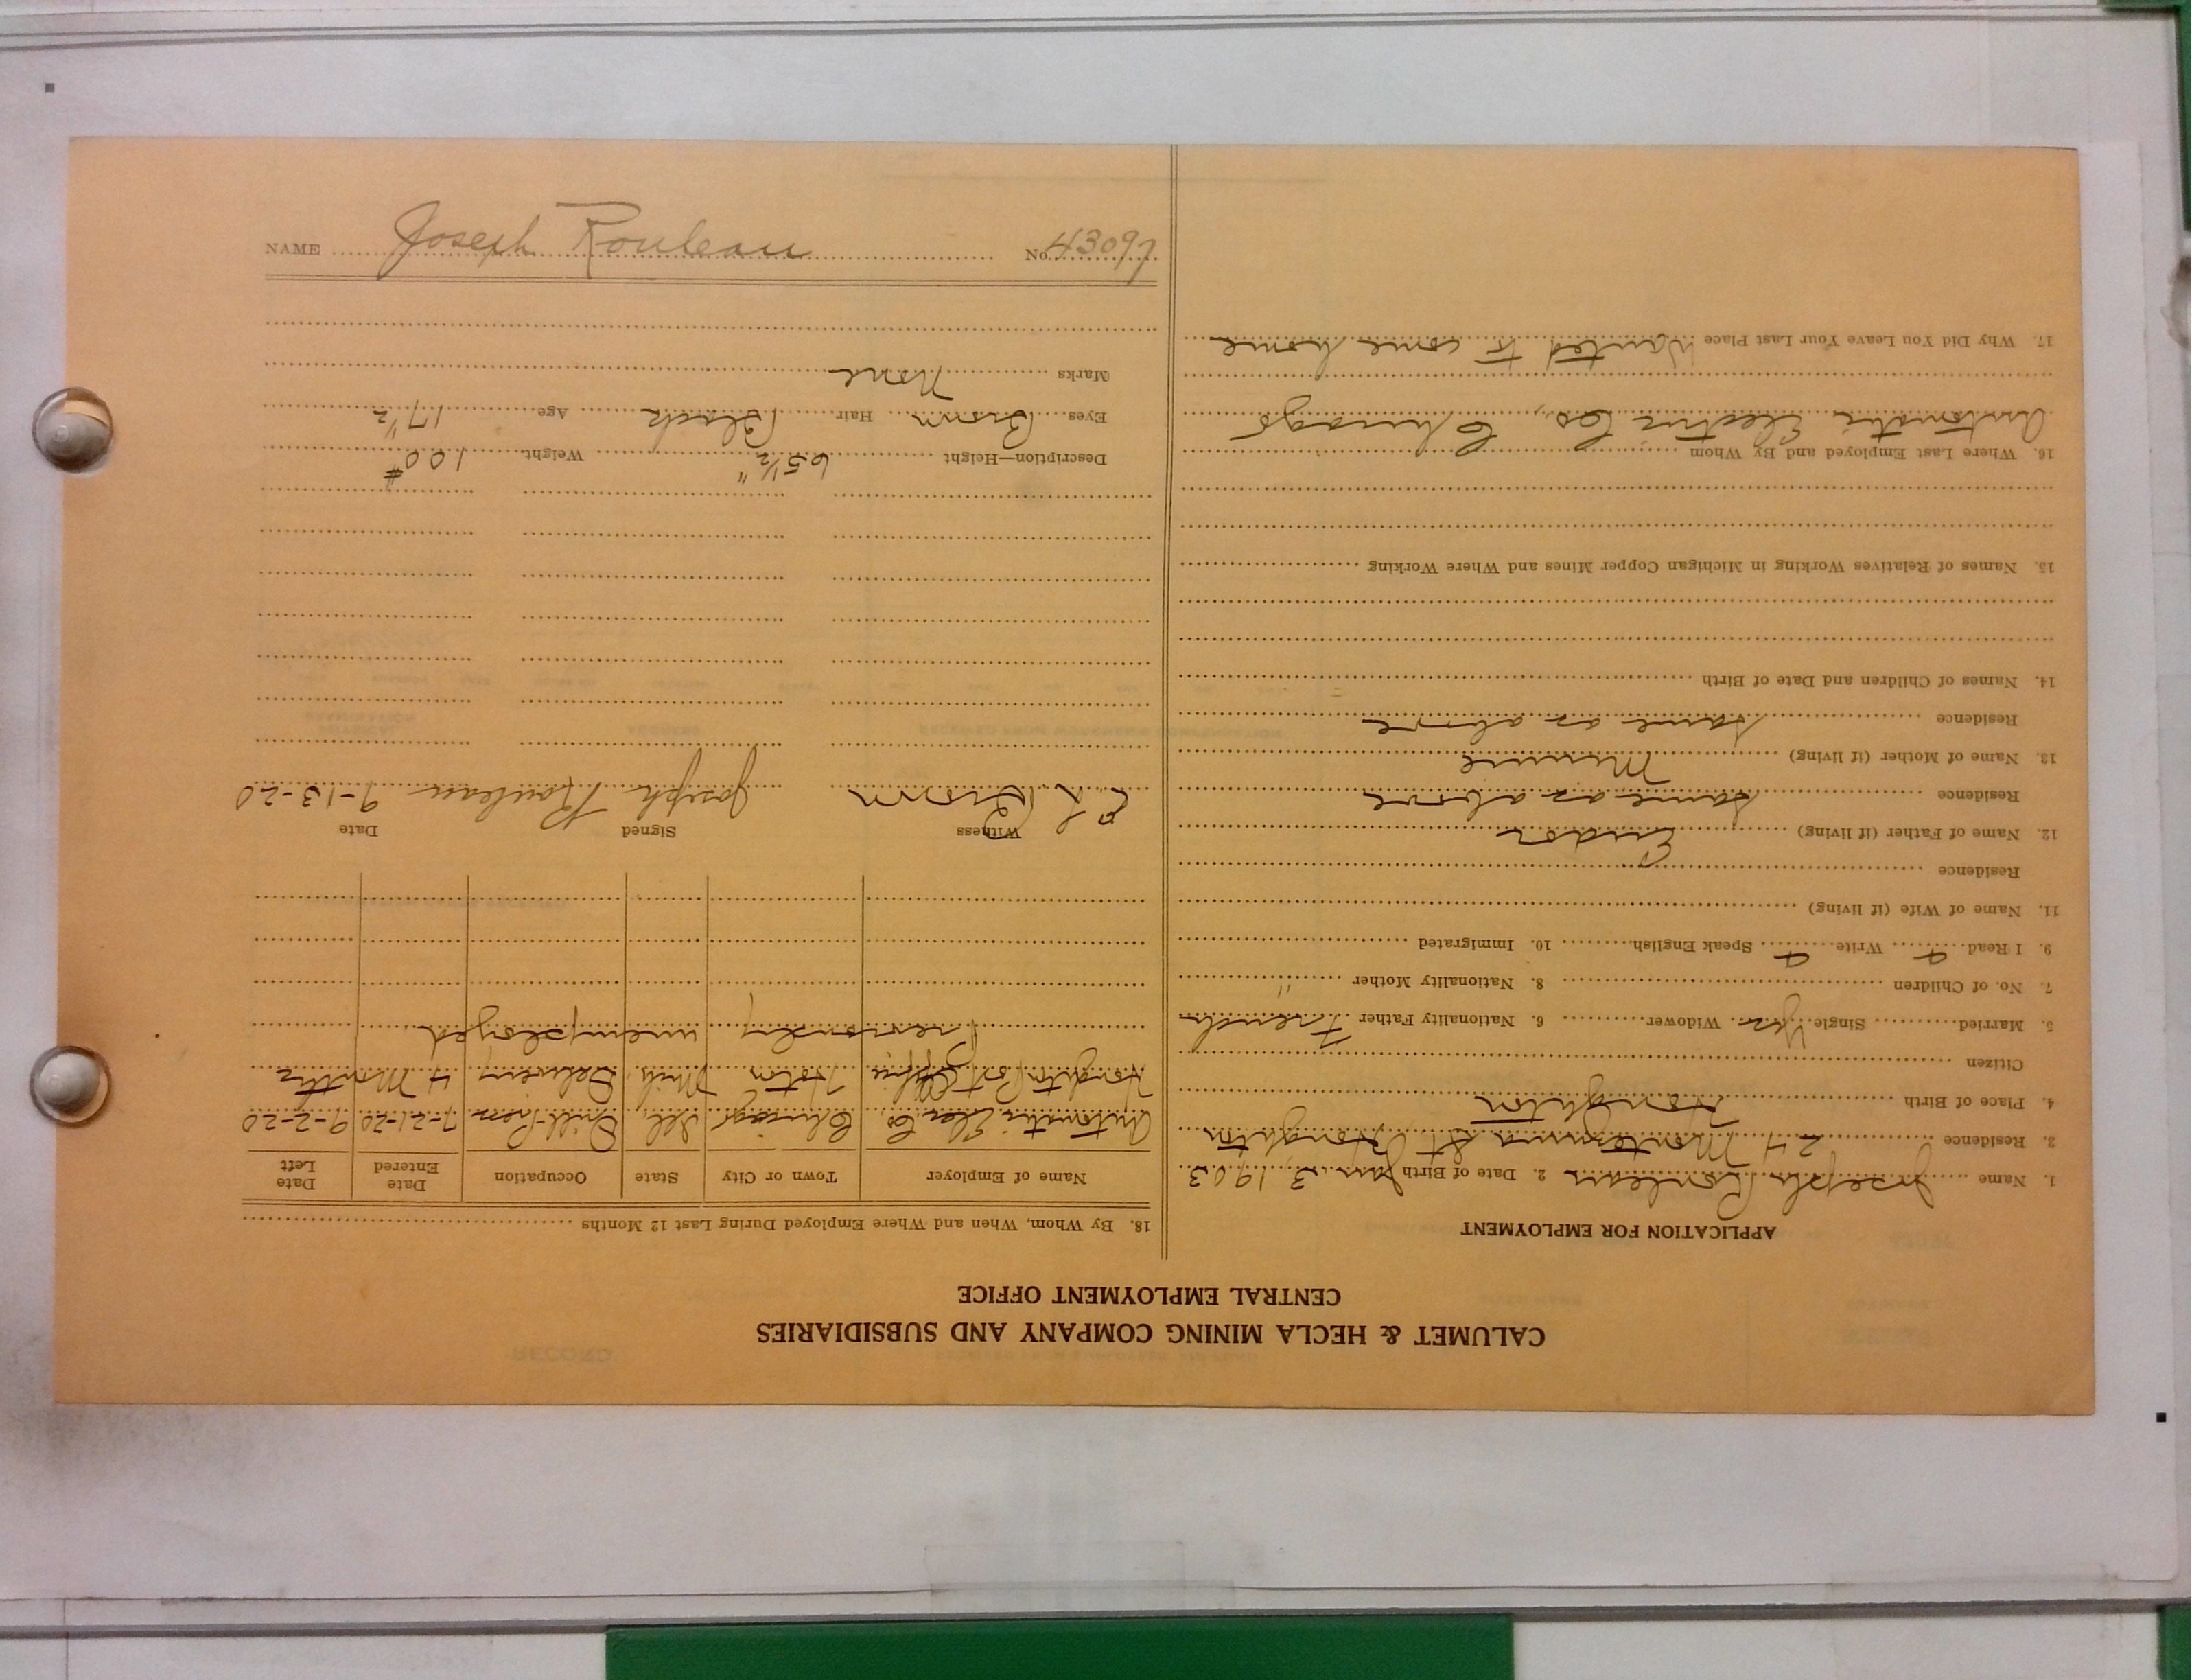 CALUMET & HECLA MINING COMPANY AND SUBSIDIARIES
CENTRAL EMPLOYMENT OFFICE
APPLICATION FOR EMPLOYMENT
1. Name Joseph Rouleau 2. Date of Birth Jan. 3, 1903
3. Residence 24 Montezuma St Houghton
4. Place of Birth Houghton
Citizen
5. Married Single Yes Widower 6. Nationality Father French
7. No. of Children 8. Nationality Mother "
9. I Read Write Speak English 10. Immigrated
11. Name of Wife (if living)
Residence
12. Name of Father (if living)
Residence Same as above
13. Name of Mother (if living) Minnie
Residence Same as above
14. Names of Children and Date of Birth
15. Names of Relatives Working in Michigan Copper Mines and Where Working
16. Where Last Employed and By Whom
Automatic Electric Co., Chicago
17. Why Did You Leave Your Last Place Wanted to come home
18. By Whom, When and Where Employed During Last 12 Months
Name of Employer Town or City State Occupation Date Entered Date Left
Automatic Elec Co Chicago Ill. Drill-Press 7-21-20 9-2-20
Houghton Post Office Hoton Mich. Delivery 4 Months
Previously unemployed
Witness Signed Date
Brown Joseph Rouleau 9-13-20
Description—Height 65½" Weight 100#
Eyes Brown Hair Black Age 17½
Marks None
NAME Joseph Rouleau No. 43097